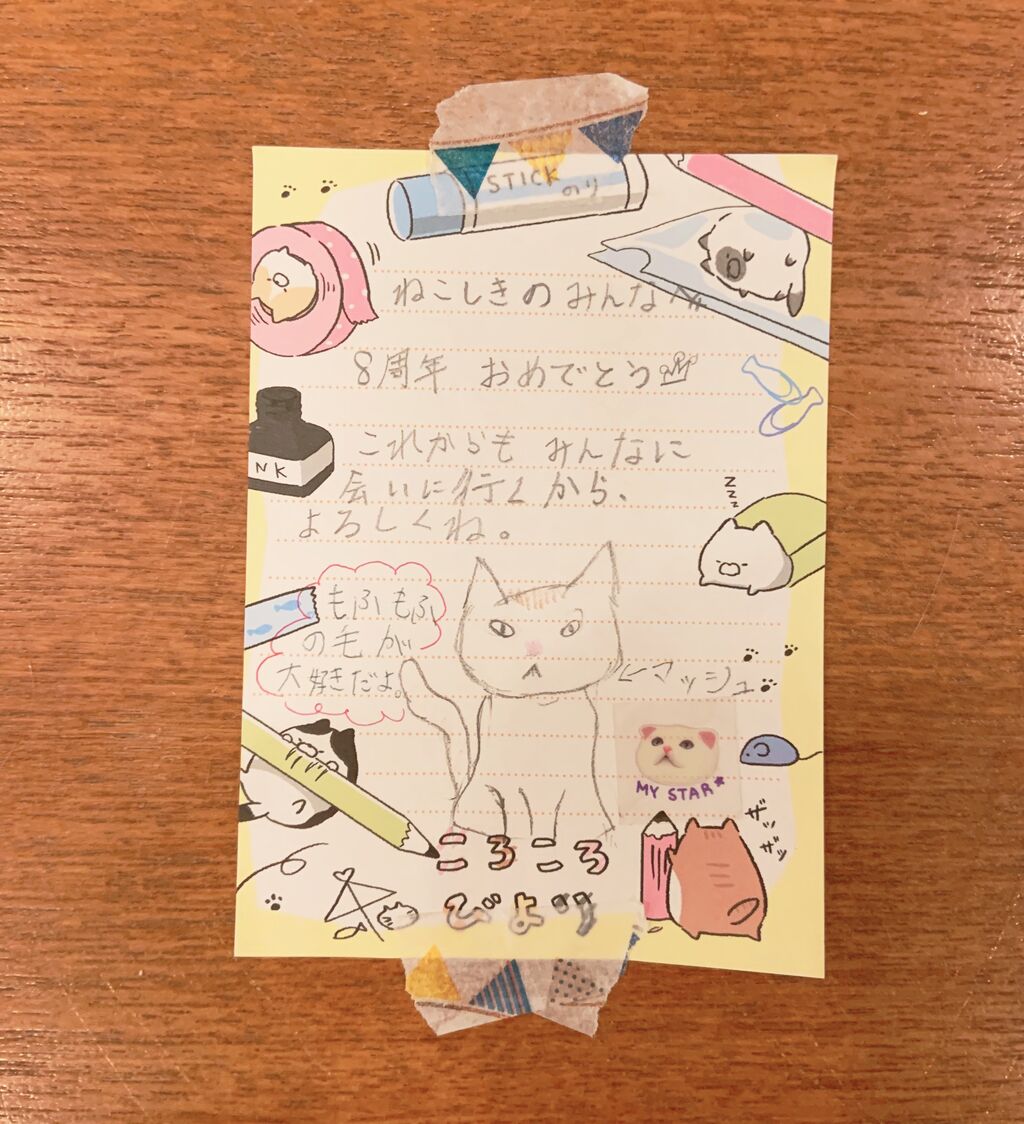 STICK
のり
ねこしきのみんなへ
8周年 おめでとう
NK
これからも みんなに
会いに行くから、
よろしくね。
zzz
もふもふ
の毛が
大好きだよ。
←マッシュ
MY STAR
ザッザッ
ころころ
びより